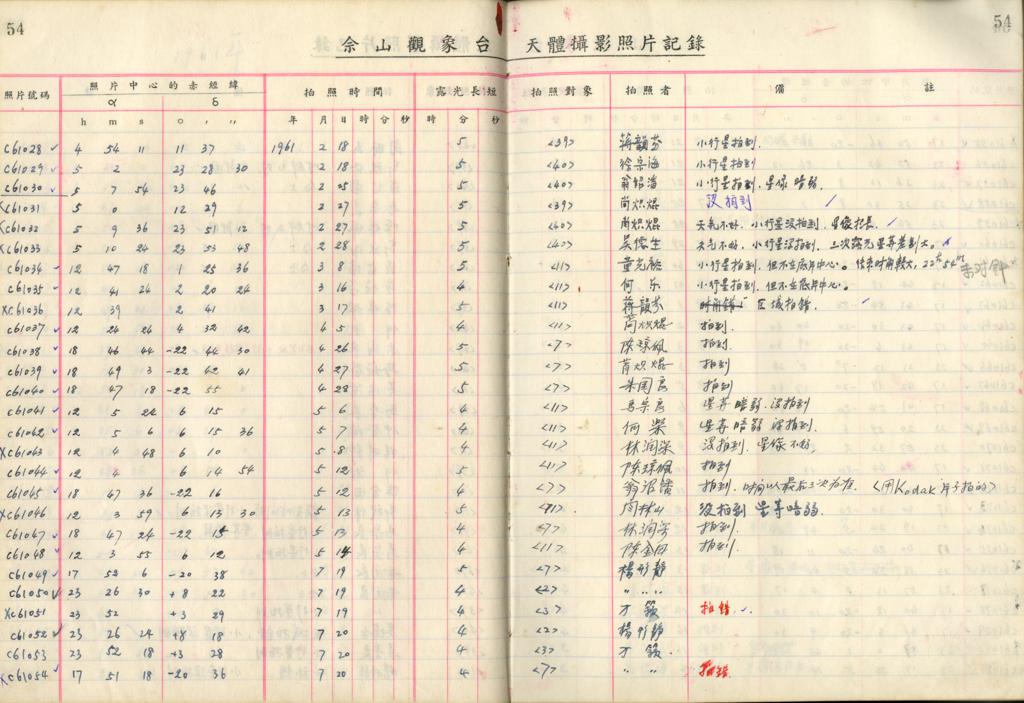 54
54
佘山觀象台 天體攝影照片記錄
照片號碼 照片中心的赤經緯 拍照時間 露光長短 拍照對象 拍照者 備註
α δ
h m s ° ′ ″ 年 月 日 時 分 秒 時 分 秒
C61028 4 54 11 11 37 1961 2 18 5 <39> 蒋韻芬 小行星拍到
C61029 5 2 23 28 30 2 18 5 <40> 小行星拍到
C61030 5 7 54 23 46 2 25 5 <40> 小行星拍到.星像暗弱.
XC61031 5 0 12 29 2 27 5 <39> 没拍到
XC61032 5 9 36 23 51 12 2 27 5 <40> 天气不好.小行星没拍到.星像拉長.
XC61033 5 10 24 23 53 48 2 28 5 <40> 天气不好.小行星没拍到.三次露光星等差别大。
C61034 12 47 18 1 25 36 3 8 5 <11> 小行星拍到.但不在底片中心。 22 54 未对钟
C61035 12 41 24 2 20 24 3 16 4 <11> 何 小行星拍到.但不在底片中心.
XC61036 12 39 2 41 3 17 5 <11> 蒋韻芬 区域拍錯.
C61037 12 24 24 4 32 42 5 4 <11> 拍到.
C61038 18 46 44 -22 44 30 4 26 5 <7> 陈琼佩 拍到.
C61039 18 49 3 -22 42 41 4 27 5 <7> 拍到
C61040 18 47 18 -22 55 4 28 5 <7> 朱国良 拍到
C61041 12 5 24 6 15 5 6 4 <11> 星等暗弱.没拍到
C61042 12 5 6 6 15 36 5 7 4 <11> 何 星等暗弱 没拍到.
XC61043 12 4 48 6 10 5 8 4 <11> 林润 没拍到.星像不好.
C61044 12 4 6 14 54 5 12 5 <11> 陈琼佩 拍到
C61045 18 47 36 -22 16 5 12 4 <7> 拍到.时间以最后三次为准. <用Kodak片子拍的>
XC61046 12 3 59 6 13 30 5 13 5 没拍到 星等暗弱
C61047 18 47 24 -22 15 5 13 4 <7> 林润 拍到.
C61048 12 3 55 6 12 5 14 4 <11> 陈金 拍到.
C61049 17 52 6 -20 38 7 19 5 <7> 楊彤静
C61050 23 26 30 +8 22 7 19 4 <2> 〃 〃
XC61051 23 52 +3 29 7 19 4 <3> 拍錯
C61052 23 26 24 +8 18 7 20 4 <2> 楊彤静
C61053 23 52 18 +3 28 7 20 4 <3>
XC61054 17 51 18 -20 36 7 20 4 <7> 〃 〃 拍錯